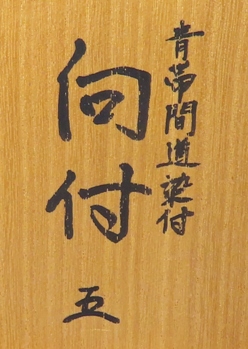 青帯間道染付
向付
五